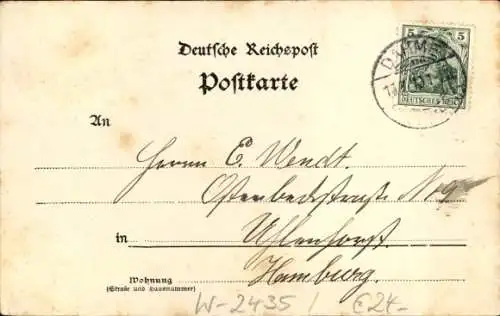 5 5
Deutsche Reichspost
Postkarte
DEUTSCHES REICH
An
Herrn E. Wendt.
No 9
in Uhlenhorst.
Hamburg.
Wohnung
(Straße und Hausnummer)
W-2435 / €24-